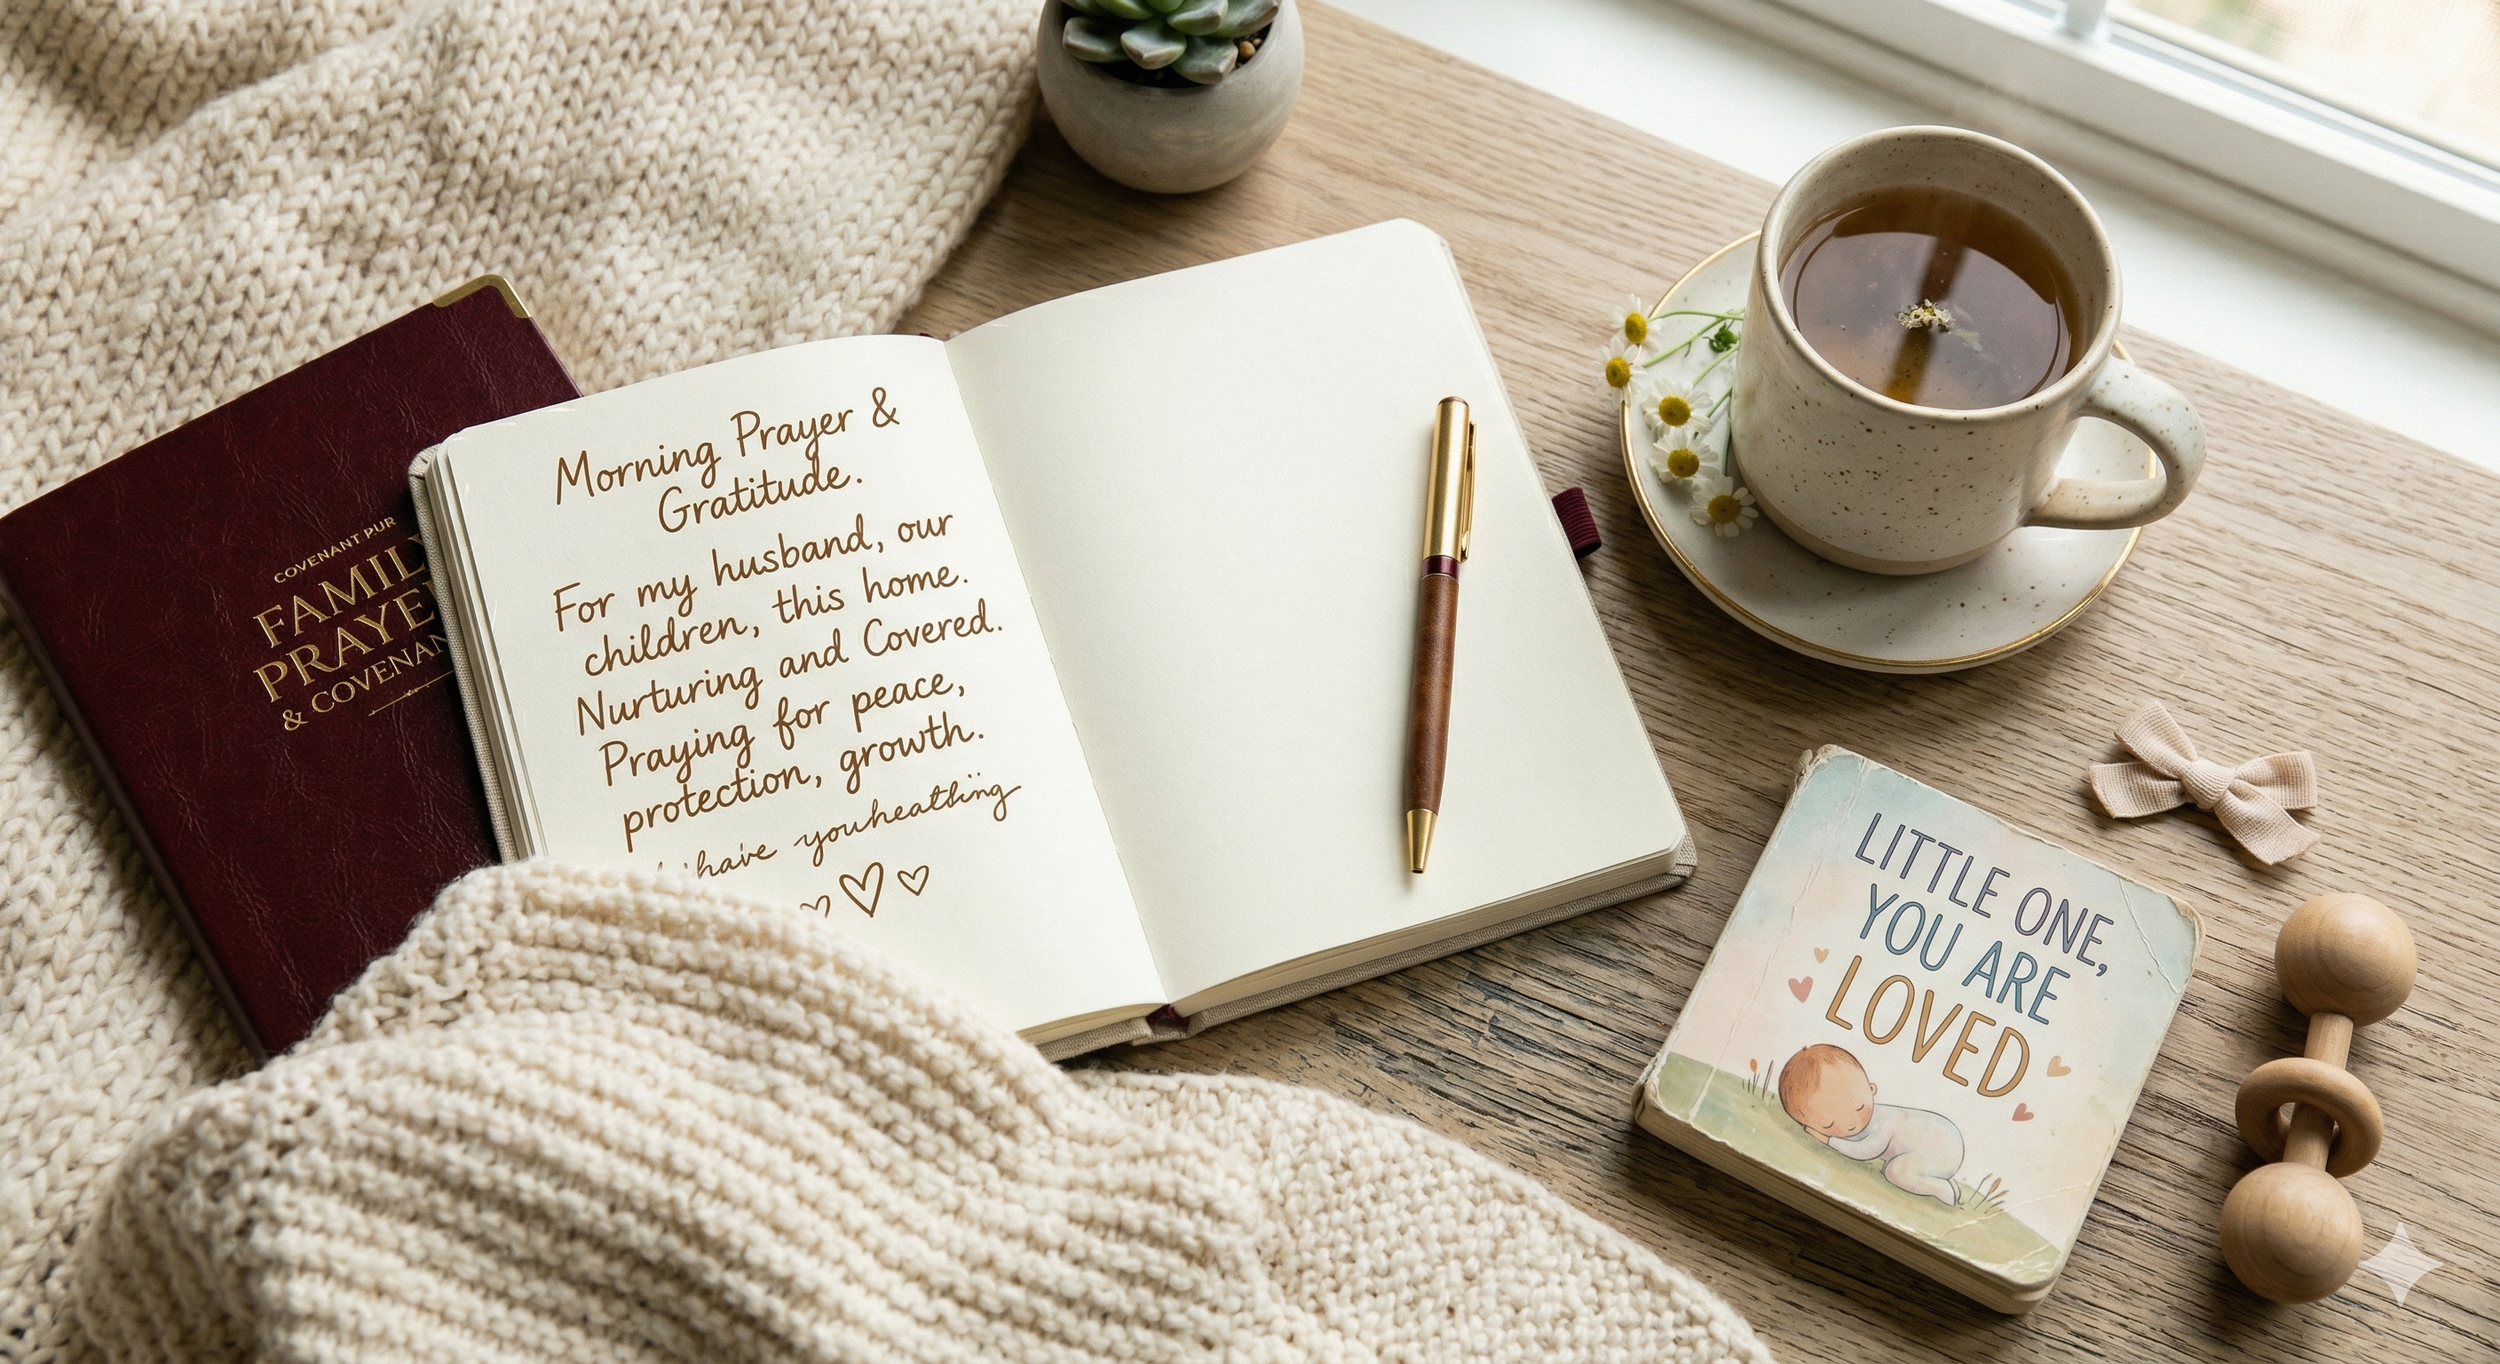 COVENANT PUR
FAMILY
PRAYE
& COVENAN
Morning Prayer &
Gratitude.
For my husband, our
children, this home.
Nurturing and Covered.
Praying for peace,
protection, growth.
have
LITTLE ONE,
YOU ARE
LOVED